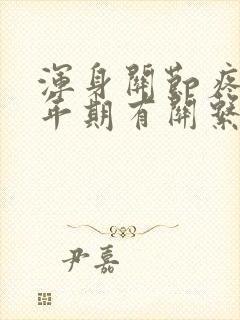 渾身關節疼
年期有關繫
尹嘉